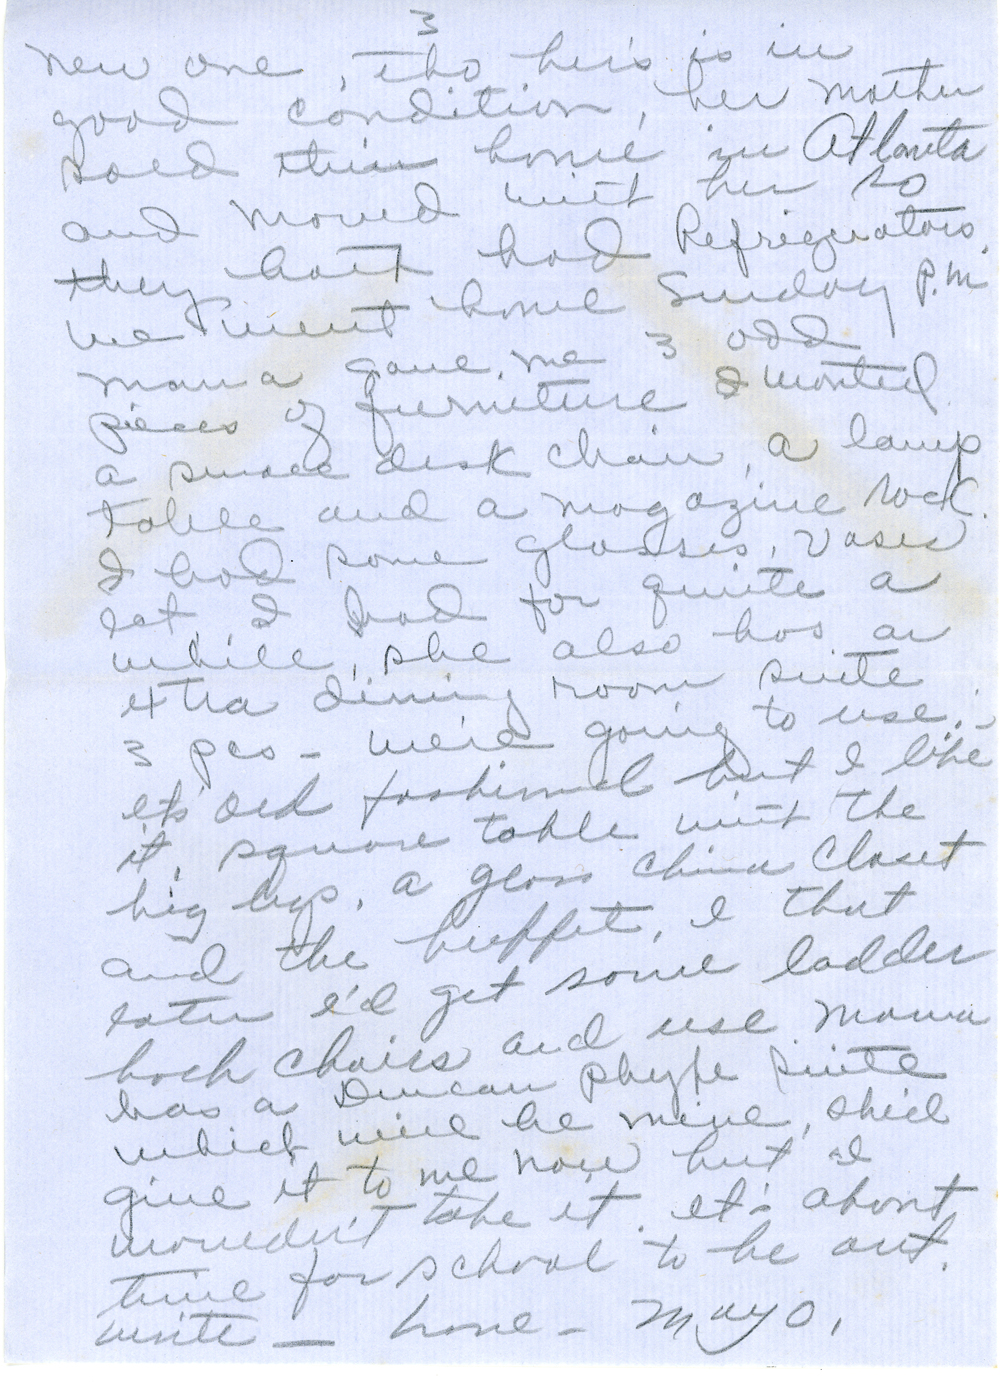 3
new one, tho her's is in
good condition, her mother
sold their home in Atlanta
and moved with her so
they both had Refrigerators.
we went home Sunday p.m.
mama gave me 3 odd
pieces of furniture I wanted.
a small desk chair, a lamp
table and a magazine rack.
I had some glasses, vases
let I had for quite a
while, she also has an
extra dining room suite
3 pcs - we're going to use.
it's old fashioned but I like
it, square table with the
big legs, a glass china closet
and the buffet, I that
later I'd get some ladder
back chairs and use mama
has a Duncan phyfe suite
which will be mine, she'd
give it to me now but I
wouldn't take it. It's about
time for school to be out.
write — love - Mayo,